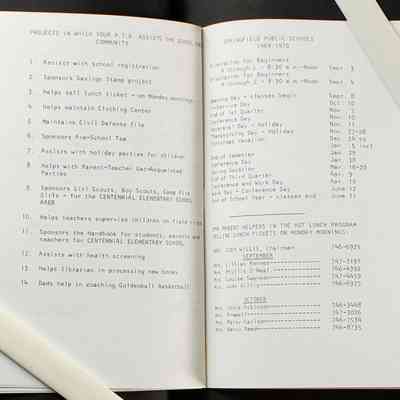 PROJECTS IN WHICH YOUR P.T.A. ASSISTS THE SCHOOL AND
COMMUNITY
1. Assists with school registration
2. Sponsors Savings Stamp project
3. Helps sell lunch ticket - on Monday mornings
4. Helps maintain Clothing Center
5. Maintains Civil Defense File
6. Sponsors Pre-School Tea
7. Assists with holiday parties for children
8. Helps with Parent-Teacher Get-Acquainted
Parties
9. Sponsors Girl Scouts, Boy Scouts, Camp Fire
Girls - for the CENTENNIAL ELEMENTARY SCHOOL
AREA
10. Helps teachers supervise children on field trips
11. Sponsors the Handbook for students, parents and
teachers for CENTENNIAL ELEMENTARY SCHOOL
12. Assists with health screening
13. Helps librarian in processing new books
14. Dads help in coaching Goldenball Basketball
SPRINGFIELD PUBLIC SCHOOLS
1969-1970
Registration for Beginners
A through L - 8:30 a.m.-Noon Sept. 3
Registration for Beginners
M through Z - 8:30 a.m.-Noon Sept. 4
Opening Day - classes begin Sept. 8
Conference Day Oct. 10
End of 1st Quarter Nov.
Conference Day Nov. 10
Veterans' Day - Holiday Nov. 11
Thanksgiving Day - Holiday Nov. 27-28
Christmas Vacation Dec.
Jan.
End of Semester Jan.
Conference Day Jan.
Spring Vacation Mar. 16-20
End of Third Quarter Apr.
Conference and Work Day Apr.
Work Day - Conference Day June 11
End of School Year - classes end June 12
PARENT HELPERS IN THE HOT LUNCH PROGRAM
SELLING LUNCH TICKETS ON MONDAY MORNINGS:
Mrs. Judy Willis, Chairman 746-6925
SEPTEMBER
Mrs. Lillian
Mrs. Phyllis O'Neal
Mrs. Louise
Mrs. Judy Willis 746-6925
OCTOBER
Mrs. 746-3468
Mrs. 747-3036
Mrs. 746-7534
Mrs. 746-8735